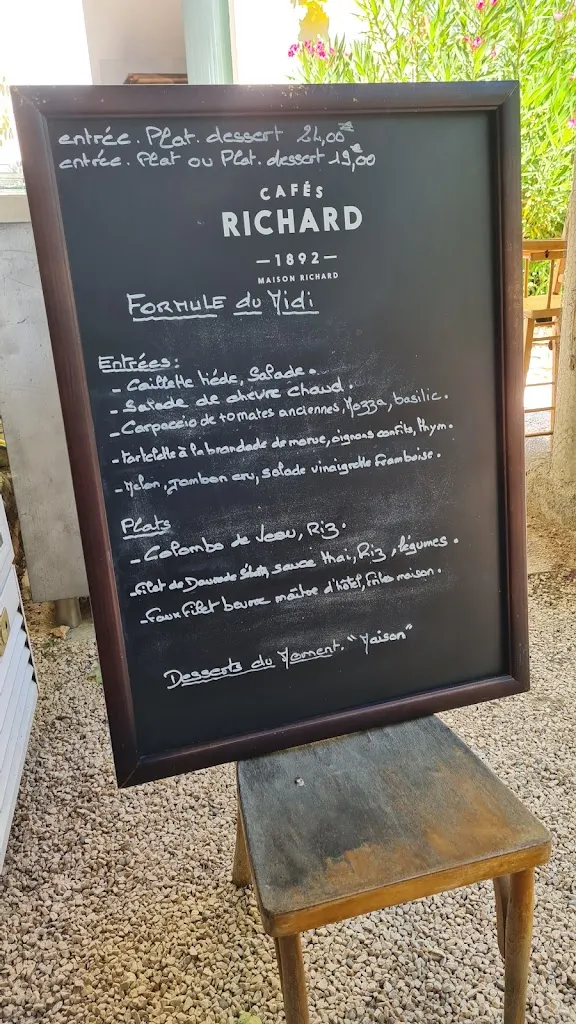 entrée. Plat. dessert 24,00€
entrée. Plat ou Plat. dessert 19,00
CAFÉS
RICHARD
—1892—
MAISON RICHARD
FORMULE du Midi
Entrées:
- Caillette tiède, Salade.
- Salade de chèvre chaud.
- Carpaccio de tomates anciennes, Mozza, basilic.
- tartelette à la brandade de morue, oignons confits, thym.
- Melon, jambon cru, salade vinaigrette framboise.
Plats
- Colombo de Veau, Riz.
- Filet de Daurade, sauce thai, Riz, légumes.
- Faux Filet beurre maître d'hôtel, frites maison.
Desserts du Moment. "Maison"